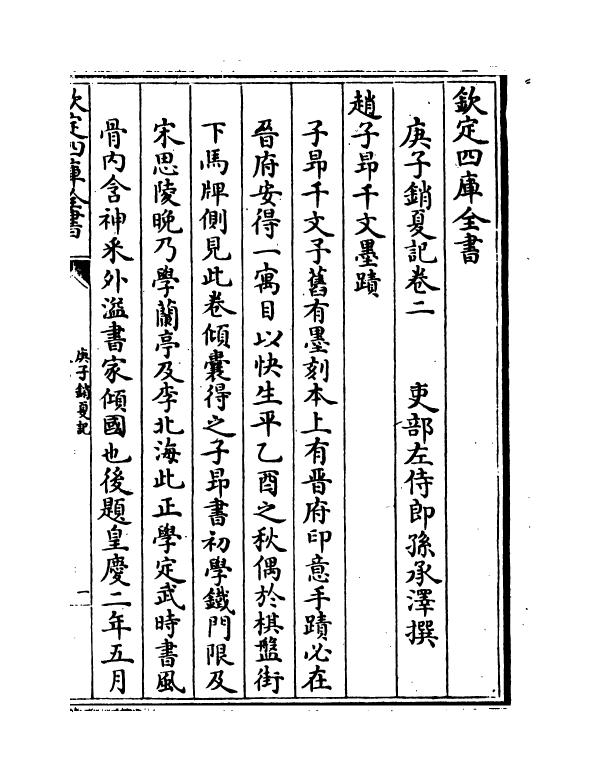 欽定四庫全書
庚子銷夏記卷二　　吏部左侍郎孫承澤撰
趙子昻千文墨蹟
子昻千文予舊有墨刻本上有晋府印意手蹟必在
晉府安得一寓目以快生平乙酉之秋偶於棋盤街
下馬牌側見此卷傾囊得之子昻書初學鐵門限及
宋思陵晚乃學蘭亭及李北海此正學定武時書風
骨内含神采外溢書家傾國也後題皇慶二年五月
欽定四庫全書
庚子銷夏記
一